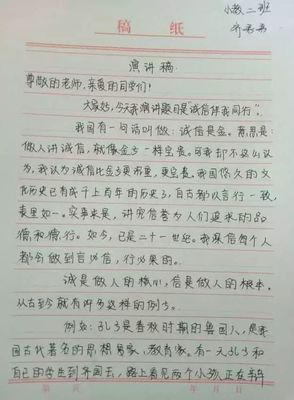 小教二班
稿 纸
演讲稿
尊敬的老师,亲爱的同学们!
大家好,今天我演讲题目是"诚信伴我同行"。
我国有一句话叫做:诚信是金。意思是:
做人讲诚信,就像金子一样宝贵。可我却不这么认
为,我认为诚信比金子更重要,更宝贵。我国伟大的文
化历史已有成千上百年的历史了,自古都以言行一致,
表里如一。实事求是,讲
信誉为人们追求的品
德和德行。如今,已是二十一世纪。我深信每个人
都会做到言必信,行必果的。
诚是做人的核心,信是做人的根本。
从古到今就有许多这样的例子。
例如:孔子是春秋时期的鲁国人,是我
国古代著名的思想家,教育家。有一天孔子和
自己的学生到齐国去,路上看见两个小孩正在争
第 页 年 月 日